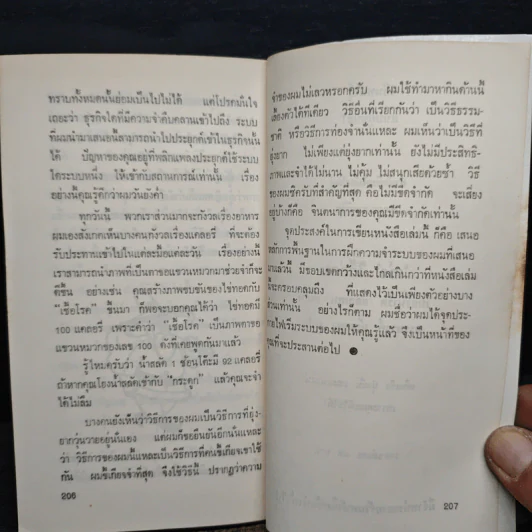 ทราบทั้งหมดนั้นย่อมเป็นไปไม่ได้ แต่โปรดมั่นใจ
เถอะว่า ธุรกิจใดที่มีความจำดีบคลานเข้าไปถึง ระบบ
ที่ผมนำมาเสนอนี้สามารถนำไปประยุกต์เข้าในธุรกิจนั้น
ได้ ปัญหาของคุณอยู่ที่พลิกแพลงประยุกต์ใช้ระบบ
ใดระบบหนึ่ง ให้เข้ากับสถานการณ์เท่านั้น เรื่อง
อย่างนี้คุณรู้ดีกว่าผมวันยังค่ำ
ทุกวันนี้ พวกเราส่วนมากกังวลเรื่องอาหาร
ผมเองสังเกตเห็นบางคนกังวลเรื่องแคลอรี่ ที่จะต้อง
รับประทานเข้าไปในแต่ละมื้อแต่ละวัน เรื่องอย่างนี้
เราสามารถนำภาพที่เป็นตาขอแขวนหมวกมาช่วยจำก็จะ
ดีขึ้น อย่างเช่น คุณสร้างภาพขบขันของไข่ทอดกับ
"เชื้อโรค" ขึ้นมา ก็พอจะบอกคุณได้ว่า ไข่ทอดมี
100 แคลอรี่ เพราะคำว่า "เชื้อโรค" เป็นภาพตาขอ
แขวนหมวกของเลข 100 ดังที่เคยพูดกันมาแล้ว
รู้ไหมครับว่า น้ำสลัด 1 ช้อนโต๊ะมี 92 แคลอรี่
ถ้าหากคุณโยงน้ำสลัดเข้ากับ "กระดูก" แล้วคุณจะจำ
ได้ไม่ลืม
บางคนยังเห็นว่าวิธีการของผมเป็นวิธีการที่ยุ่ง-
ยากวุ่นวายอยู่นั่นเอง แต่ผมก็ขอยืนยันอีกนั่นแหละ
ว่า วิธีการของผมนี้แหละเป็นวิธีการที่คนขี้เกียจเขาใช้
กัน ผมขี้เกียจจำที่สุด จึงใช้วิธีนี้ ปรากฏว่าความ
206
จำของผมไม่เลวหรอกครับ ผมใช้ทำมาหากินด้านนี้
เลี้ยงตัวได้ทีเดียว วิธีอื่นที่เรียกกันว่า เป็นวิธีธรรม-
ชาติ หรือวิธีการท่องจำนั่นแหละ ผมเห็นว่าเป็นวิธีที่
ยุ่งยาก ไม่เพียงแต่ยุ่งยากเท่านั้น ยังไม่มีประสิทธิ-
ภาพและจำได้ไม่นาน ไม่คุ้ม ไม่สนุกเสียด้วยซ้ำ วิธี
ของผมซิครับที่สำคัญที่สุด คือไม่มีขีดจำกัด จะเสี่ยง
อยู่บ้างก็คือ จินตนาการของคุณมีขีดจำกัดเท่านั้น
จุดประสงค์ในการเขียนหนังสือเล่มนี้ ก็คือ เสนอ
หลักการพื้นฐานในการฝึกความจำระบบของผมที่เสนอ
มาแล้วนี้ มีขอบเขตกว้างและไกลเกินกว่าที่หนังสือเล่ม
นี้จะครอบคลุมถึง ที่แสดงไว้เป็นเพียงตัวอย่างบาง
ส่วนเท่านั้น อย่างไรก็ตาม ผมชื่อว่าผมได้จุดประ-
กายให้เริ่มระบบของผมให้คุณรู้แล้ว จึงเป็นหน้าที่ของ
คุณที่จะประสานต่อไป ●
207